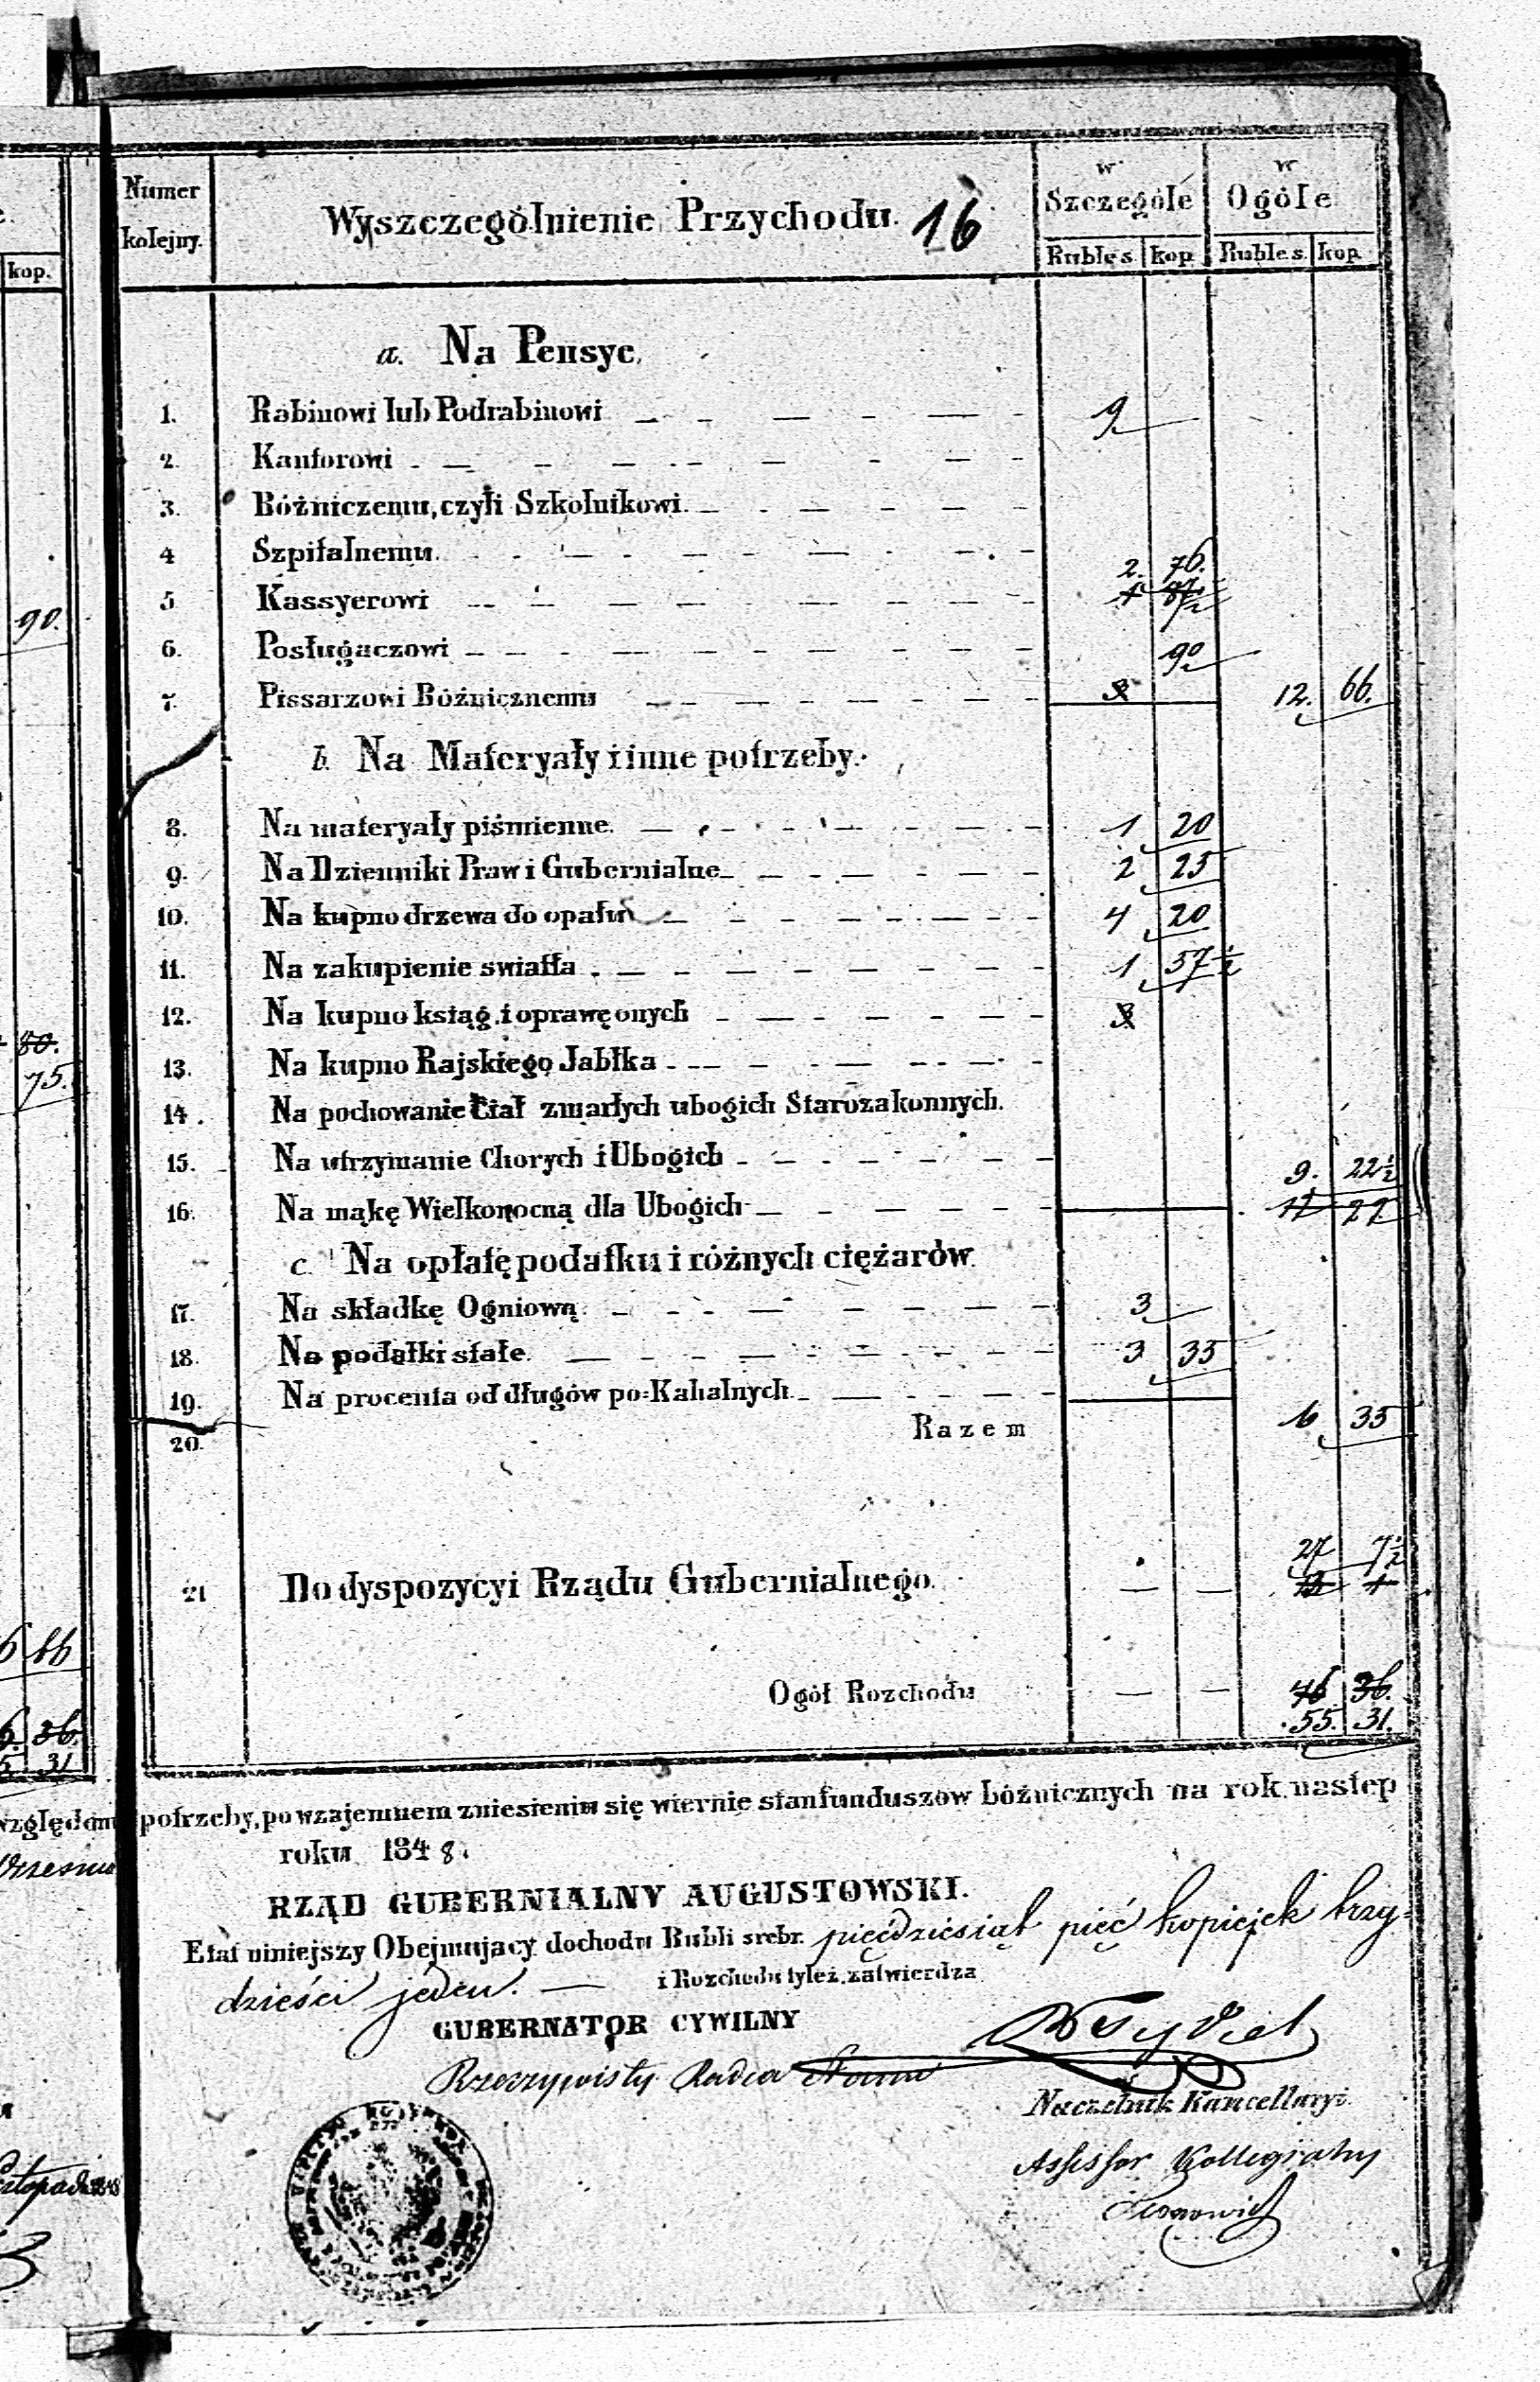 Numer kolejny.
Wyszczególnienie Przychodu. 16
w Szczególe
w Ogóle
Ruble s. kop. Ruble s. kop.
kop.
a. Na Pensye.
1. Rabinowi lub Podrabinowi 9
2. Kantorowi
3. Bóźniczemu, czyli Szkolnikowi.
4 Szpitalnemu.
2. 76.
5 Kassyerowi 1 87½
90.
6. Posługaczowi 90
7. Pissarzowi Bóźnicznemu 12. 66.
b. Na Materyały i inne potrzeby.
8. Na materyały piśmienne. 1 20
9. Na Dzienniki Praw i Gubernialne 2 25
10. Na kupno drzewa do opału 4 20
11. Na zakupienie swiatła 1 57½
12. Na kupno ksiąg i oprawę onych
80.
13. Na kupno Rajskiego Jabłka
75.
14. Na pochowanie Ciał zmarłych ubogich Starozakonnych.
15. Na utrzymanie Chorych i Ubogich 9. 22½
16. Na mąkę Wielkonocną dla Ubogich 22
c. Na opłatę podatku i różnych ciężarów.
17. Na składkę Ogniową. 3
18. Na podatki stałe. 3 35
19. Na procenta od długów po-Kahalnych.
20. Razem 6 35
27 7½
21 Do dyspozycyi Rządu Gubernialnego.
6 66
Ogół Rozchodu 46 36.
55. 31.
36.
5 31
względem potrzeby, po wzajemnem zniesieniu się wiernie stan funduszow bóżnicznych na rok nastep
roku 1848.
RZĄD GUBERNIALNY AUGUSTOWSKI.
Etat niniejszy Obejmujacy dochodu Rubli srebr. pięćdziesiąt pięć kopiejek trzy-
dzieści jeden. — i Rozchodu tyleż, zatwierdza
GUBERNATOR CYWILNY
Rzeczywisty Radca Stanu
Naczelnik Kancellaryi.
Assessor Kollegialny